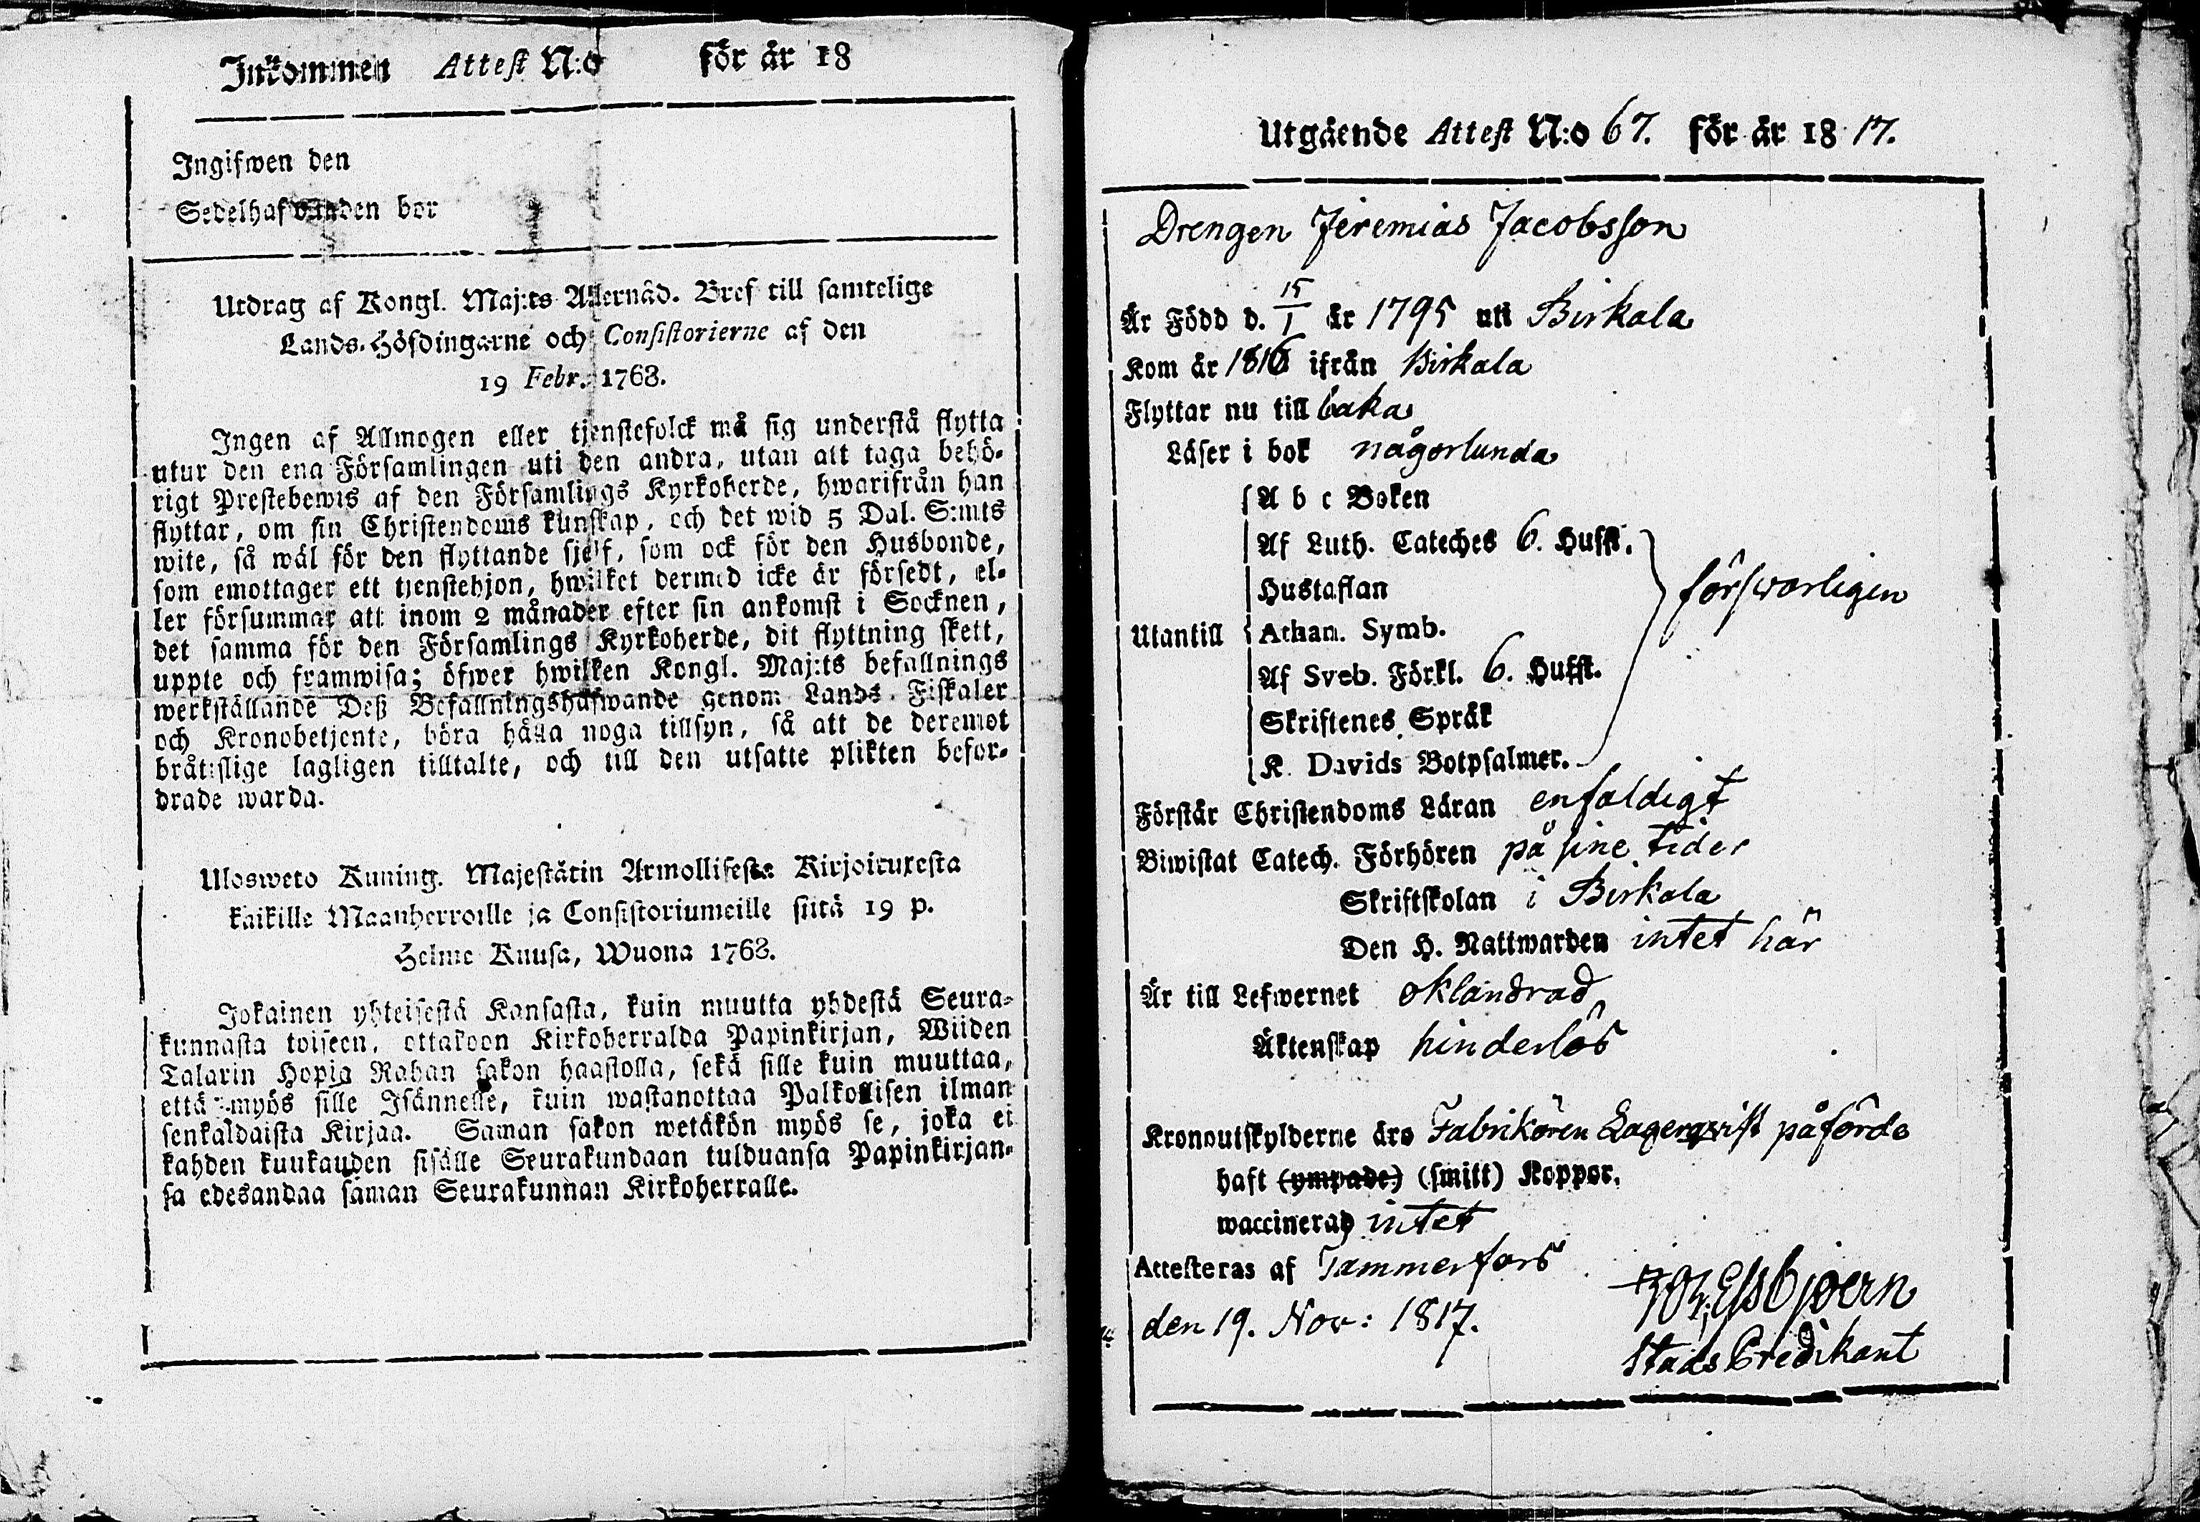 Inkommen Attest N:o för år 18
Ingifwen den
Sedelhafwanden bor
Utdrag af Kongl. Maj:ts Allernåd. Bref till samtelige
Lands-Höfdingarne och Consistorierne af den
19 Febr. 1768.
Ingen af Allmogen eller tjenstefolck må sig understå flytta
utur den ena Församlingen uti den andra, utan att taga behö-
rigt Prestebewis af den Församlings Kyrkoherde, hwarifrån han
flyttar, om sin Christendoms kunskap, och det wid 5 Dal. S:mts
wite, så wäl för den flyttande sjelf, som ock för den Husbonde,
som emottager ett tjenstehjon, hwilket dermed icke är försedt, el-
ler försummar att inom 2 månader efter sin ankomst i Socknen,
det samma för den Församlings Kyrkoherde, dit flyttning skett,
uppte och framwisa; öfwer hwilken Kongl. Maj:ts befallnings
werkställande Deß Befallningshafwande genom Lands-Fiskaler
och Kronobetjente, böra hålla noga tillsyn, så att de deremot
bråtslige lagligen tilltalte, och till den utsatte plikten befor-
drade warda.
Ulosweto Kuning. Majestätin Armollisesta Kirjoituxesta
kaikille Maanherroille ja Consistoriumeille siitä 19 p.
Helme Kuusa, Wuona 1768.
Jokainen yhteisestä Kansasta, kuin muutta yhdestä Seura-
kunnasta toiseen, ottakoon Kirkoherralda Papinkirjan, Wiiden
Talarin Hopia Rahan sakon haastolla, sekä sille kuin muuttaa,
että myös sille Isännelle, kuin wastanottaa Palkollisen ilman
senkaldaista Kirjaa. Saman sakon wetäkön myös se, joka ei
kahden kuukauden sisälle Seurakundaan tulduansa Papinkirjan-
sa edesandaa saman Seurakunnan Kirkoherralle.
Utgående Attest N:o 67. för år 18 17.
Drengen Jeremias Jacobsson
Är Född d. 15/1 år 1795 uti Birkala
Kom år 1816 ifrån Birkala
Flyttar nu till baka
Läser i bok någorlunda
A b c Boken
Af Luth. Cateches 6. Hufst.
Hustaflan
försvarligen
Utantill Athan. Symb.
Af Sveb. Förkl. 6. Hufst.
Skriftenes Språk
K. Davids Botpsalmer.
Förstår Christendoms Läran enfaldigt
Biwistat Catech. Förhören på sine tider
Skriftskolan i Birkala
Den H. Nattwarden intet här
Är till Lefwernet oklandrad
Äktenskap hinderlös
Kronoutskylderne äro Fabrikören Lagerqvist påförde
haft (ympade) (smitt) Koppor.
waccinerad intet
Attesteras af Tammerfors
den 19. Nov: 1817.
Essbjoern
Stads Predikant